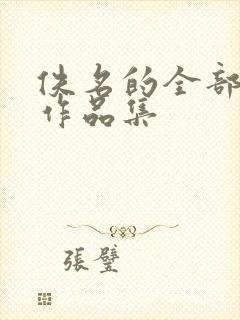 佚名的全部
作品集
張璧